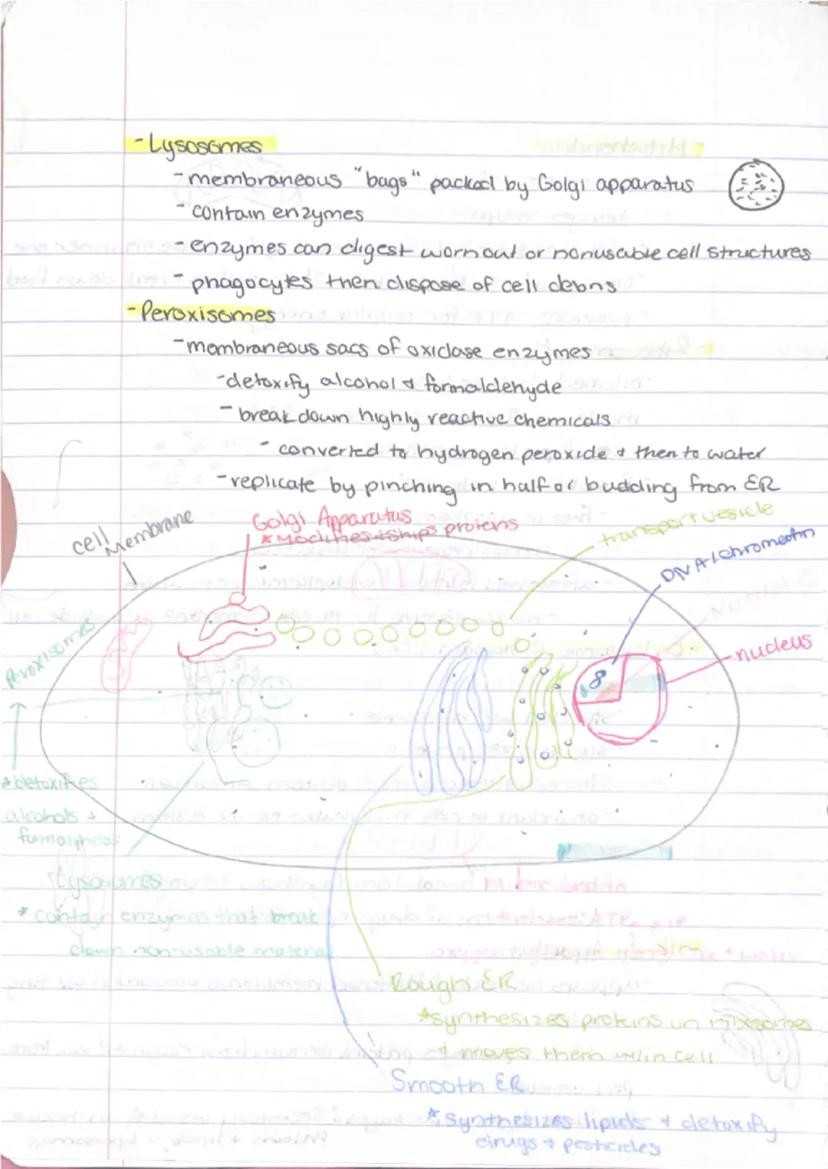 - Lysosomes
- membraneous "bags" packed by Golgi apparatus
- contain enzymes
- enzymes can digest worn out or nonusable cell structures
- phagocytes then dispose of cell debris
- Peroxisomes
- membraneous sacs of oxidase enzymes
- detoxify alcohol & formaldehyde
- break down highly reactive chemicals
- converted to hydrogen peroxide & then to water
- replicate by pinching in half or budding from ER
cell Membrane
Golgi Apparatus
* Modifies & ships proteins
transport vesicle
DNA/chromatin
nucleus
Peroxisomes
* detoxifies
alcohols &
Lysosomes
* contain enzymes that break
down non-usable material
Rough ER
* synthesizes proteins on ribosomes
& moves them w/in cell
Smooth ER
* Synthesizes lipids & detoxify
drugs & pesticides